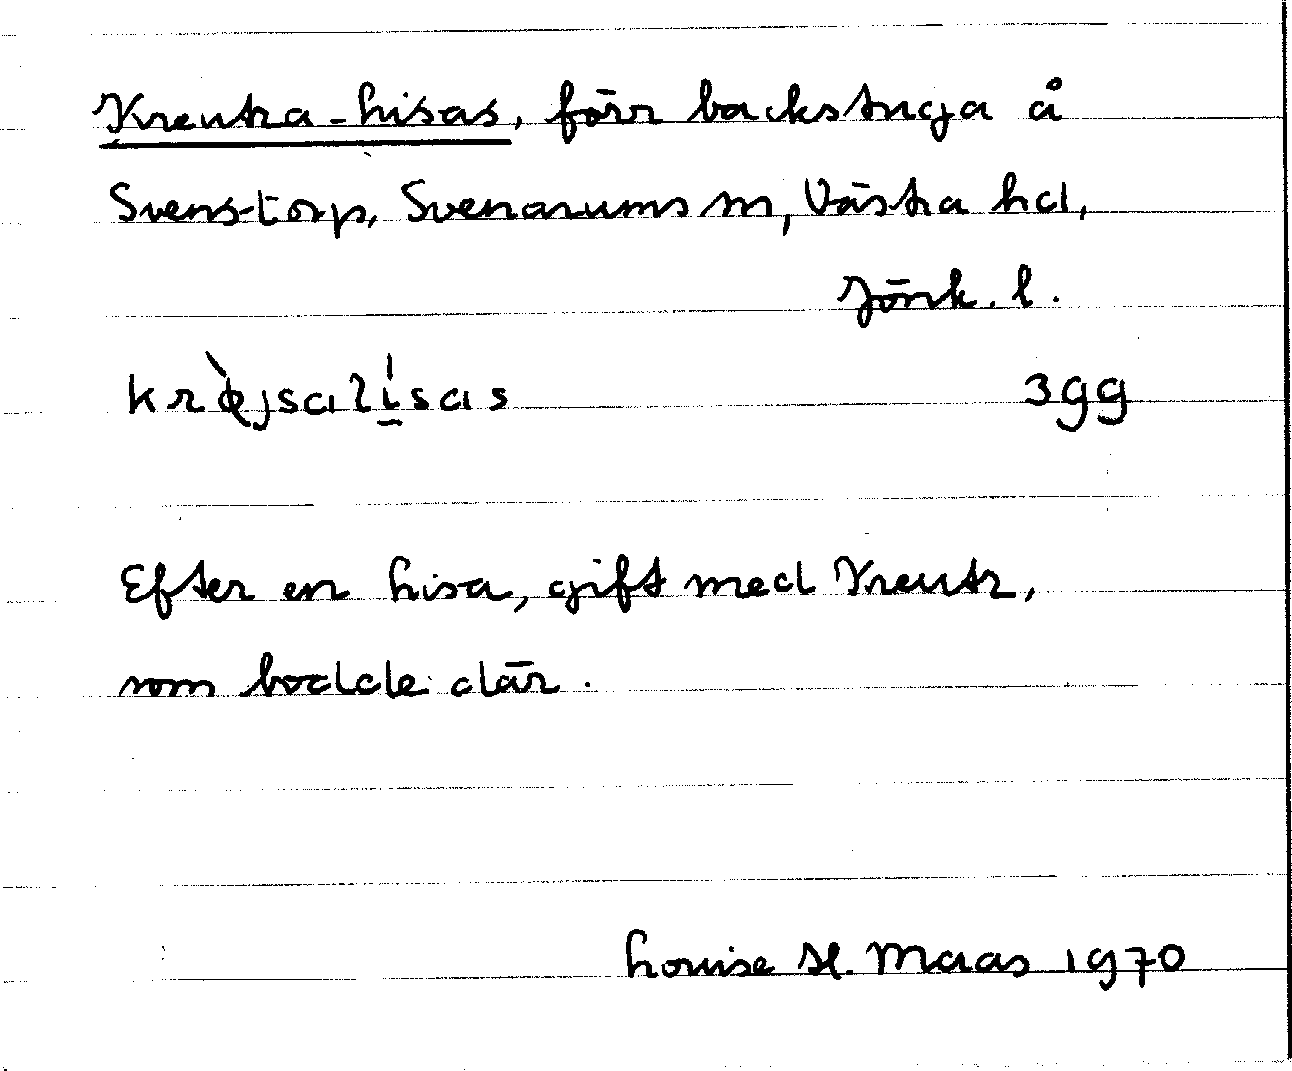 Kreutza-Lisas, förr backstuga å
Svenstorp, Svenarums sn, Västra hd,
Jönk. l.
krὲjsalísas 3gg
Efter en Lisa, gift med Kreutz,
som bodde där.
Louise H. Maas 1970